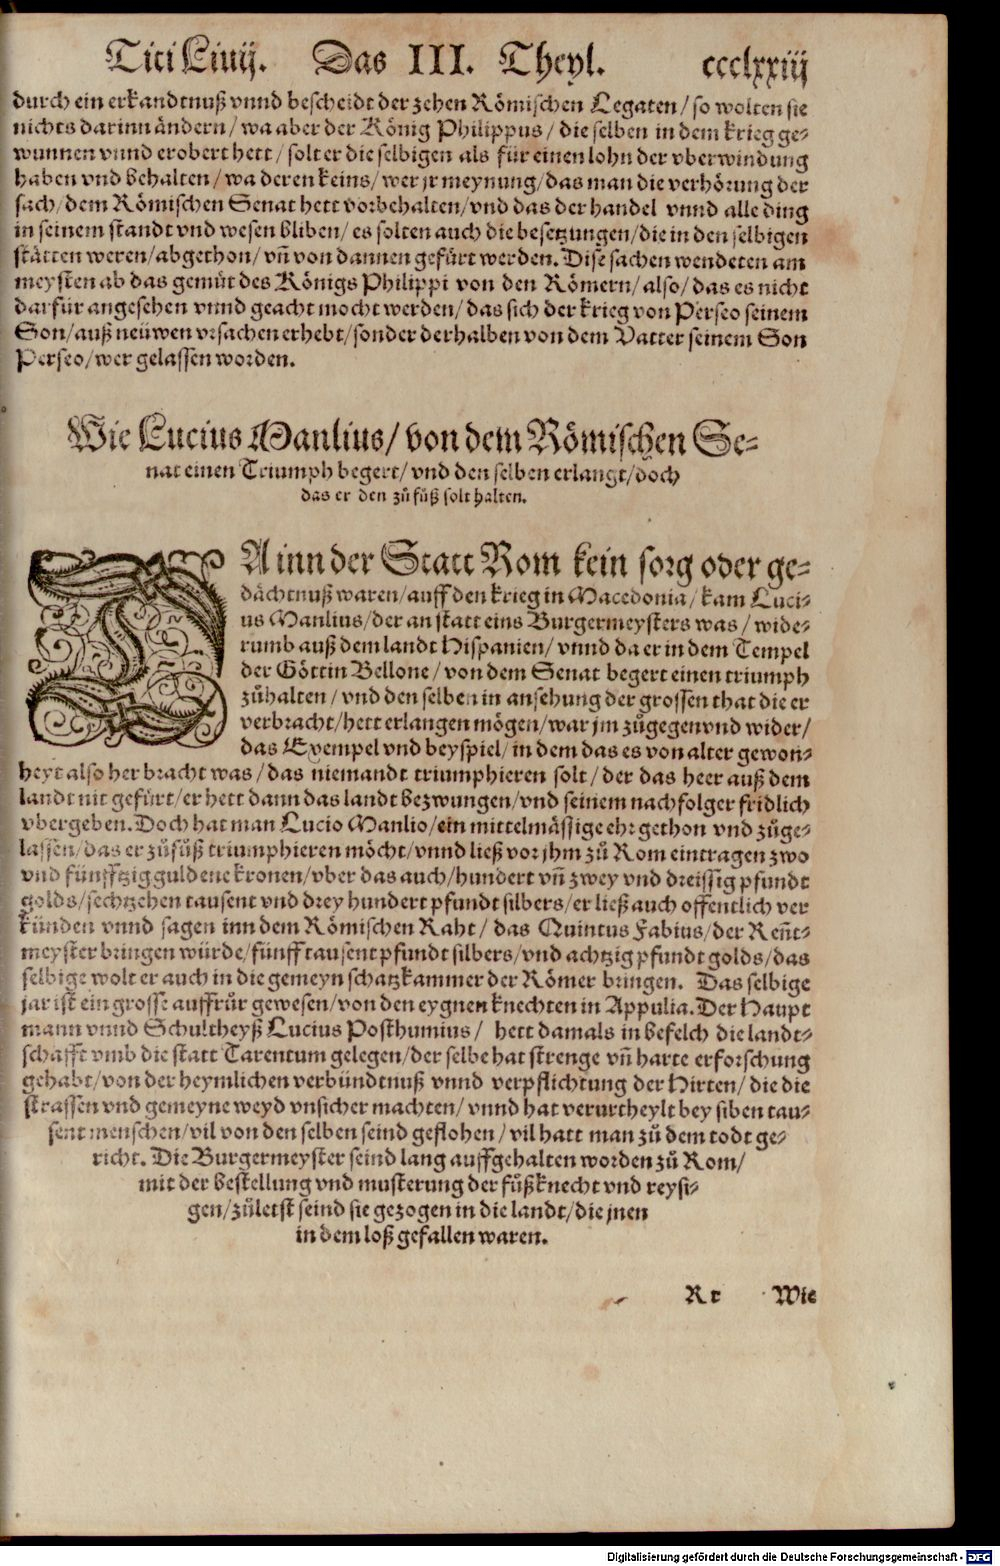 Titi Liuij. Das III. Theyl. ccclxxiij
durch ein erkandtnuß vnnd bescheidt der zehen Römischen Legaten/ so wolten sie
nichts darinn ändern/ wa aber der König Philippus/ die selben in dem krieg ge-
wunnen vnnd erobert hett/ solt er die selbigen als für einen lohn der vberwindung
haben vnd behalten/ wa deren keins/ wer jr meynung/ das man die verhörung der
sach/ dem Römischen Senat hett vorbehalten/ vnd das der handel vnnd alle ding
in seinem standt vnd wesen bliben/ es solten auch die besetzungen/ die in den selbigen
stätten weren/ abgethon/ vñ von dannen gefürt werden. Dise sachen wendeten am
meysten ab das gemüt des Königs Philippi von den Römern/ also/ das es nicht
darfür angesehen vnnd geacht mocht werden/ das sich der krieg von Perseo seinem
Son/ auß neüwen vrsachen erhebt/ sonder derhalben von dem Vatter seinem Son
Perseo/ wer gelassen worden.
Wie Lucius Manlius/ von dem Römischen Se-
nat einen Triumph begert/ vnd den selben erlangt/ doch
das er den zů fůß solt halten.
DA inn der Statt Rom kein sorg oder ge-
dächtnuß waren/ auff den krieg in Macedonia/ kam Luci-
us Manlius/ der an statt eins Burgermeysters was/ wide-
rumb auß dem landt Hispanien/ vnnd da er in dem Tempel
der Göttin Bellone/ von dem Senat begert einen triumph
zůhalten/ vnd den selben in ansehung der grossen that die er
verbracht/ hett erlangen mögen/ war jm zůgegen vnd wider/
das Exempel vnd beyspiel/ in dem das es von alter gewon-
heyt also her bracht was/ das niemandt triumphieren solt/ der das heer auß dem
landt nit gefürt/ er hett dann das landt bezwungen/ vnd seinem nachfolger fridlich
vbergeben. Doch hat man Lucio Manlio/ ein mittelmässige ehr gethon vnd zůge-
lassen/ das er zůfůß triumphieren möcht/ vnnd ließ vor jhm zů Rom eintragen zwo
vnd fünfftzig guldene kronen/ vber das auch/ hundert vñ zwey vnd dreissig pfundt
golds/ sechtzehen tausent vnd drey hundert pfundt silbers/ er ließ auch offentlich ver
künden vnnd sagen inn dem Römischen Raht/ das Quintus Fabius/ der Reñt-
meyster bringen würde/ fünff tausent pfundt silbers/ vnd achtzig pfundt golds/ das
selbige wolt er auch in die gemeyn schatzkammer der Römer bringen. Das selbige
jar ist ein grosse auffrůr gewesen/ von den eygnen knechten in Appulia. Der Haupt
mann vnnd Schultheyß Lucius Posthumius/ hett damals in befelch die landt-
schafft vmb die statt Tarentum gelegen/ der selbe hat strenge vñ harte erforschung
gehabt/ von der heymlichen verbündtnuß vnnd verpflichtung der Hirten/ die die
strassen vnd gemeyne weyd vnsicher machten/ vnnd hat verurtheylt bey siben tau-
sent menschen/ vil von den selben seind geflohen/ vil hatt man zů dem todt ge-
richt. Die Burgermeyster seind lang auffgehalten worden zů Rom/
mit der bestellung vnd musterung der fůßknecht vnd reysi-
gen/ zůletst seind sie gezogen in die landt/ die jnen
in dem loß gefallen waren.
Rr Wie
Digitalisierung gefördert durch die Deutsche Forschungsgemeinschaft - DFG